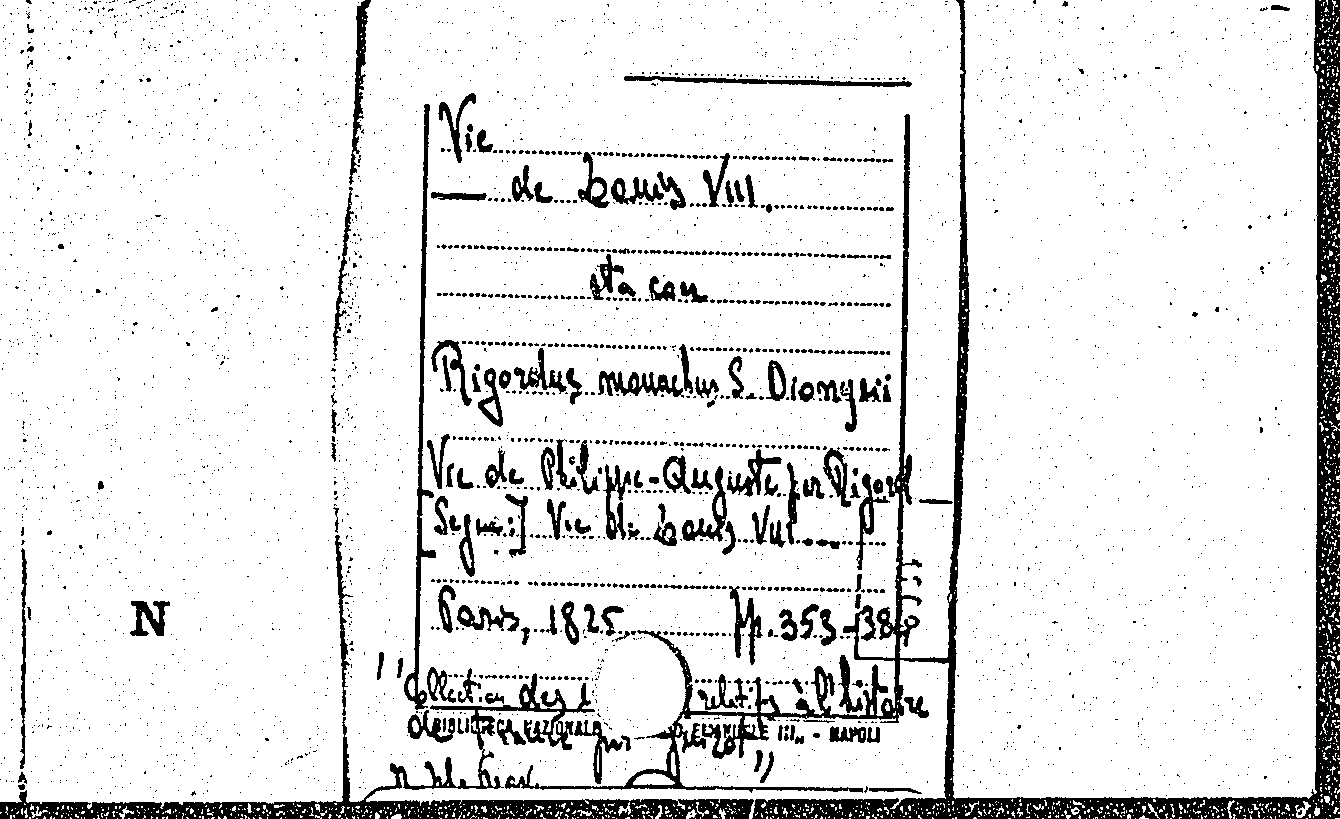 Vie
— de Louis VIII.
sta con
Rigordus, monachus S. Dionysii
Vie de Philippe-Auguste par Rigord
[Segue:] Vie de Louis VIII...
Paris, 1825 pp. 353-38
"Collection des relatifs à l'histoire
BIBLIOTECA NAZIONALE III„ - NAPOLI
de France par Guizot"
N